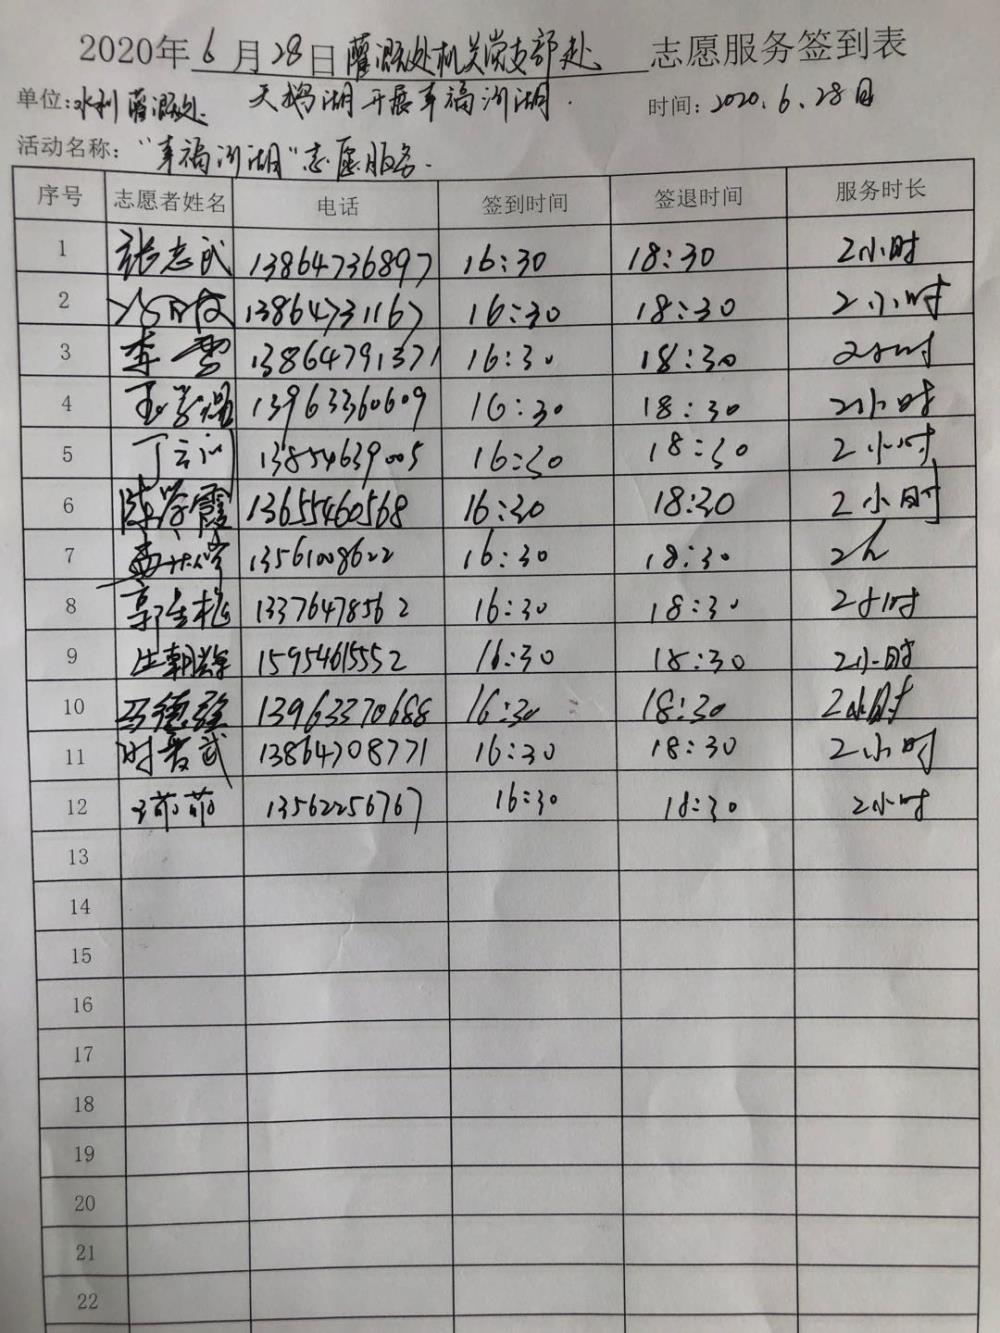 2020年6月28日灌溉处机关党支部赴 志愿服务签到表
天鹅湖开展幸福河湖.
单位:水利灌溉处 时间:2020.6.28日
活动名称:“幸福河湖”志愿服务.
序号 志愿者姓名 电话 签到时间 签退时间 服务时长
1 张志武 13864736897 16:30 18:30 2小时
2 13864731167 16:30 18:30 2小时
3 李雪 13864791371 16:30 18:30 2小时
4 13963360609 16:30 18:30 2小时
5 丁云 13854639005 16:30 18:30 2小时
6 陈学霞 13655460568 16:30 18:30 2小时
7 13561008622 16:30 18:30 2h
8 郭 13376478562 16:30 18:30 2小时
9 朝辉 15954615552 16:30 18:30 2小时
10 马德强 13963370688 16:30 18:30 2小时
11 时 武 13864708771 16:30 18:30 2小时
12 萌萌 13562256767 16:30 18:30 2小时
13
14
15
16
17
18
19
20
21
22